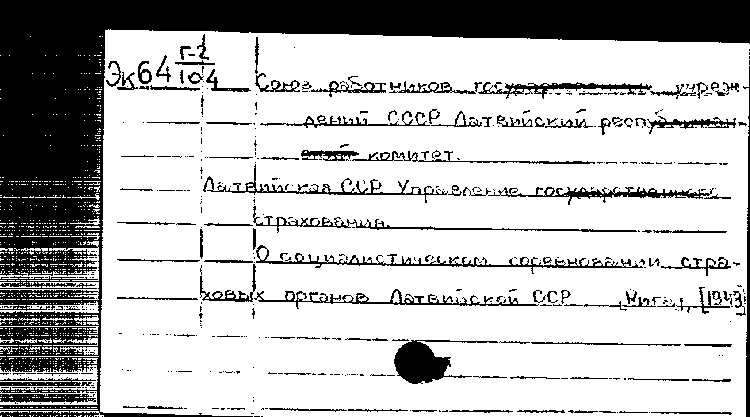 Эк64 Г-2/104
Союз работников государственных учреж-
дений СССР Латвийский республикан-
ский комитет.
Латвийская ССР Управление государственного
страхования.
О социалистическом соревновании стра-
ховых органов Латвийской ССР [Рига], [1943]